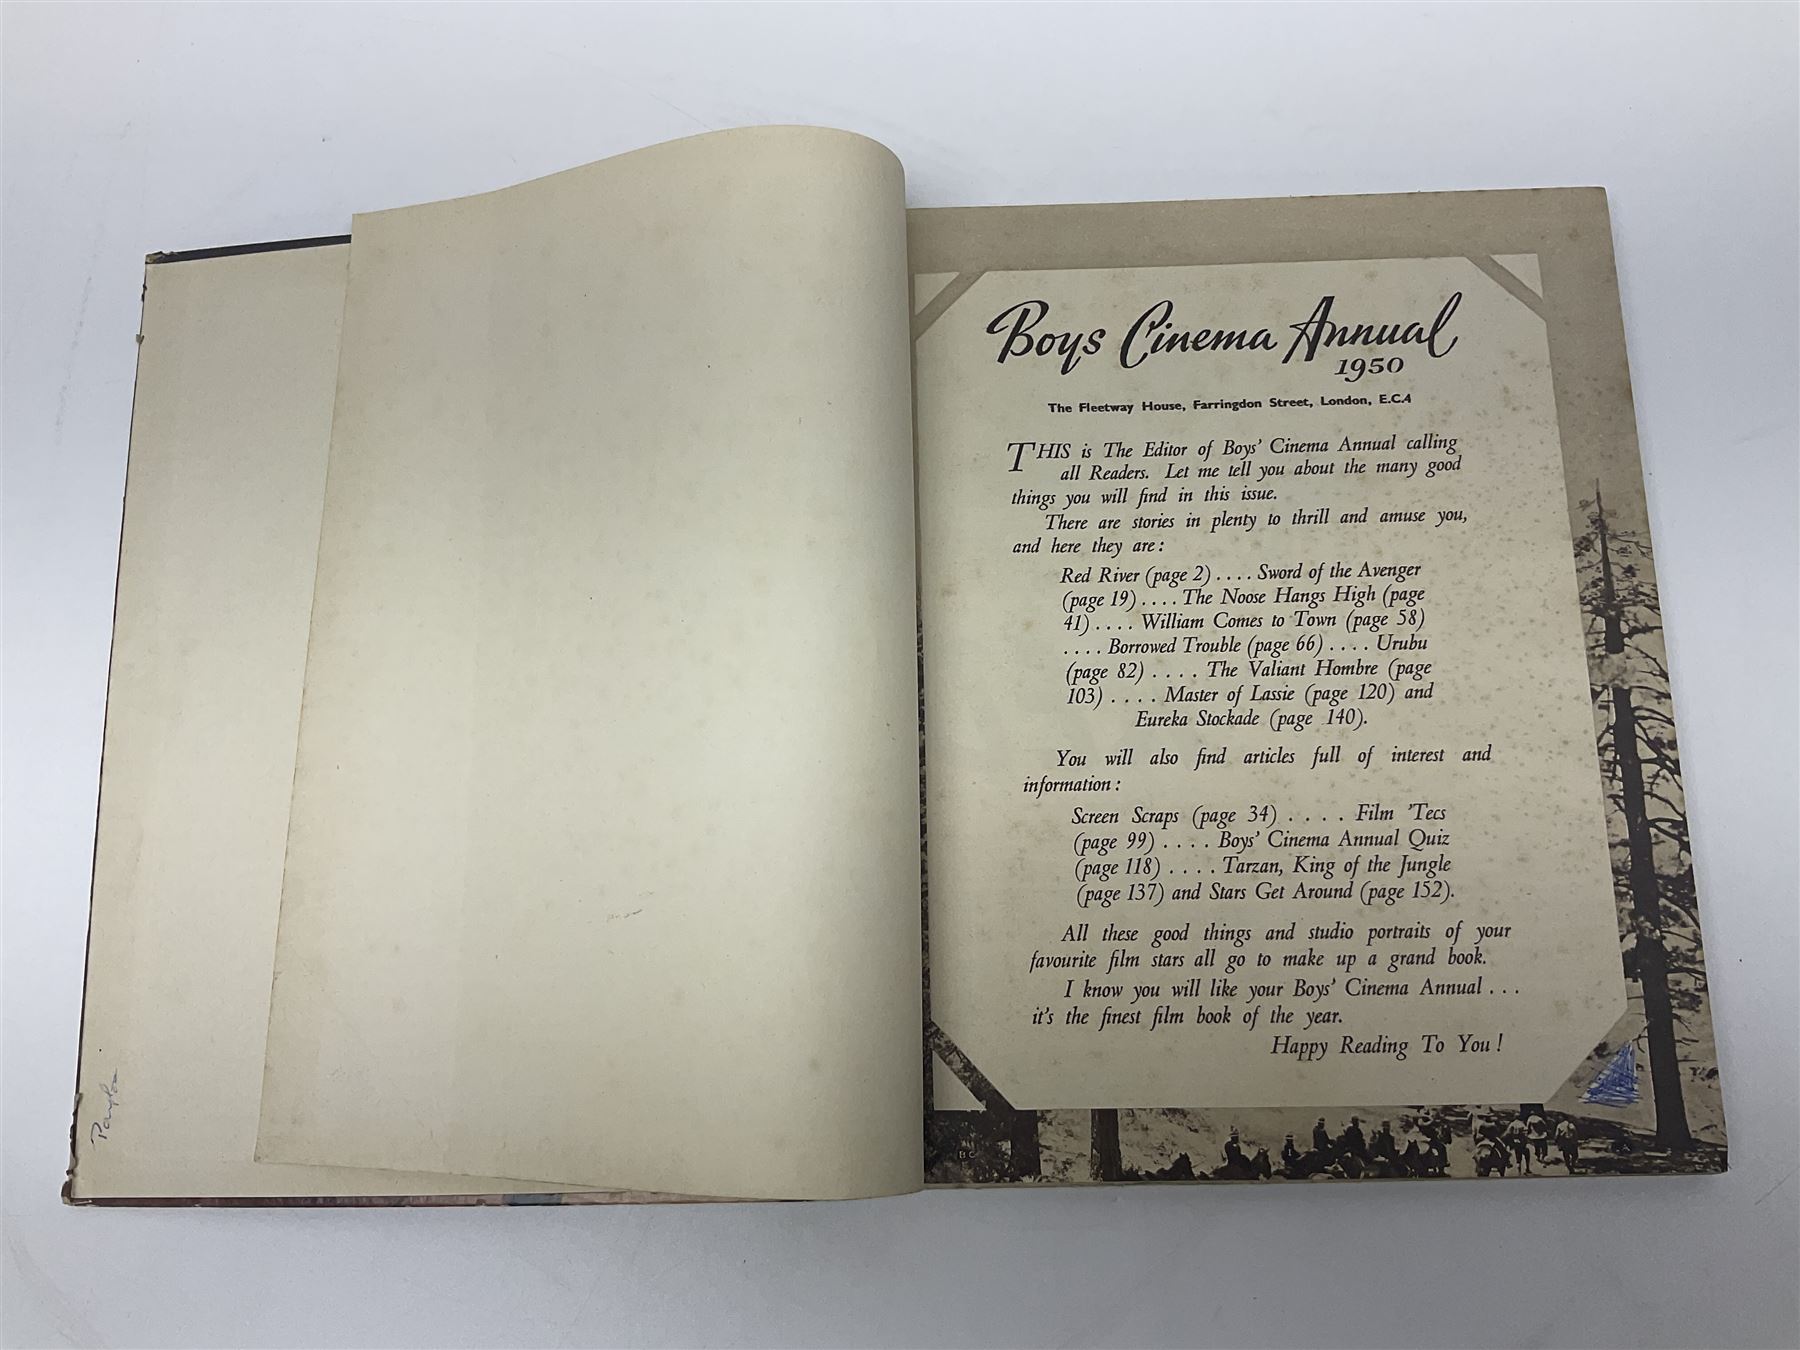 Boys Cinema Annual
1950
The Fleetway House, Farringdon Street, London, E.C.4
THIS is The Editor of Boys' Cinema Annual calling
all Readers. Let me tell you about the many good
things you will find in this issue.
There are stories in plenty to thrill and amuse you,
and here they are:
Red River (page 2) .... Sword of the Avenger
(page 19) .... The Noose Hangs High (page
41) .... William Comes to Town (page 58)
.... Borrowed Trouble (page 66) .... Urubu
(page 82) .... The Valiant Hombre (page
103) .... Master of Lassie (page 120) and
Eureka Stockade (page 140).
You will also find articles full of interest and
information:
Screen Scraps (page 34) .... Film 'Tecs
(page 99) .... Boys' Cinema Annual Quiz
(page 118) .... Tarzan, King of the Jungle
(page 137) and Stars Get Around (page 152).
All these good things and studio portraits of your
favourite film stars all go to make up a grand book.
I know you will like your Boys' Cinema Annual ...
it's the finest film book of the year.
Happy Reading To You!
B C
A